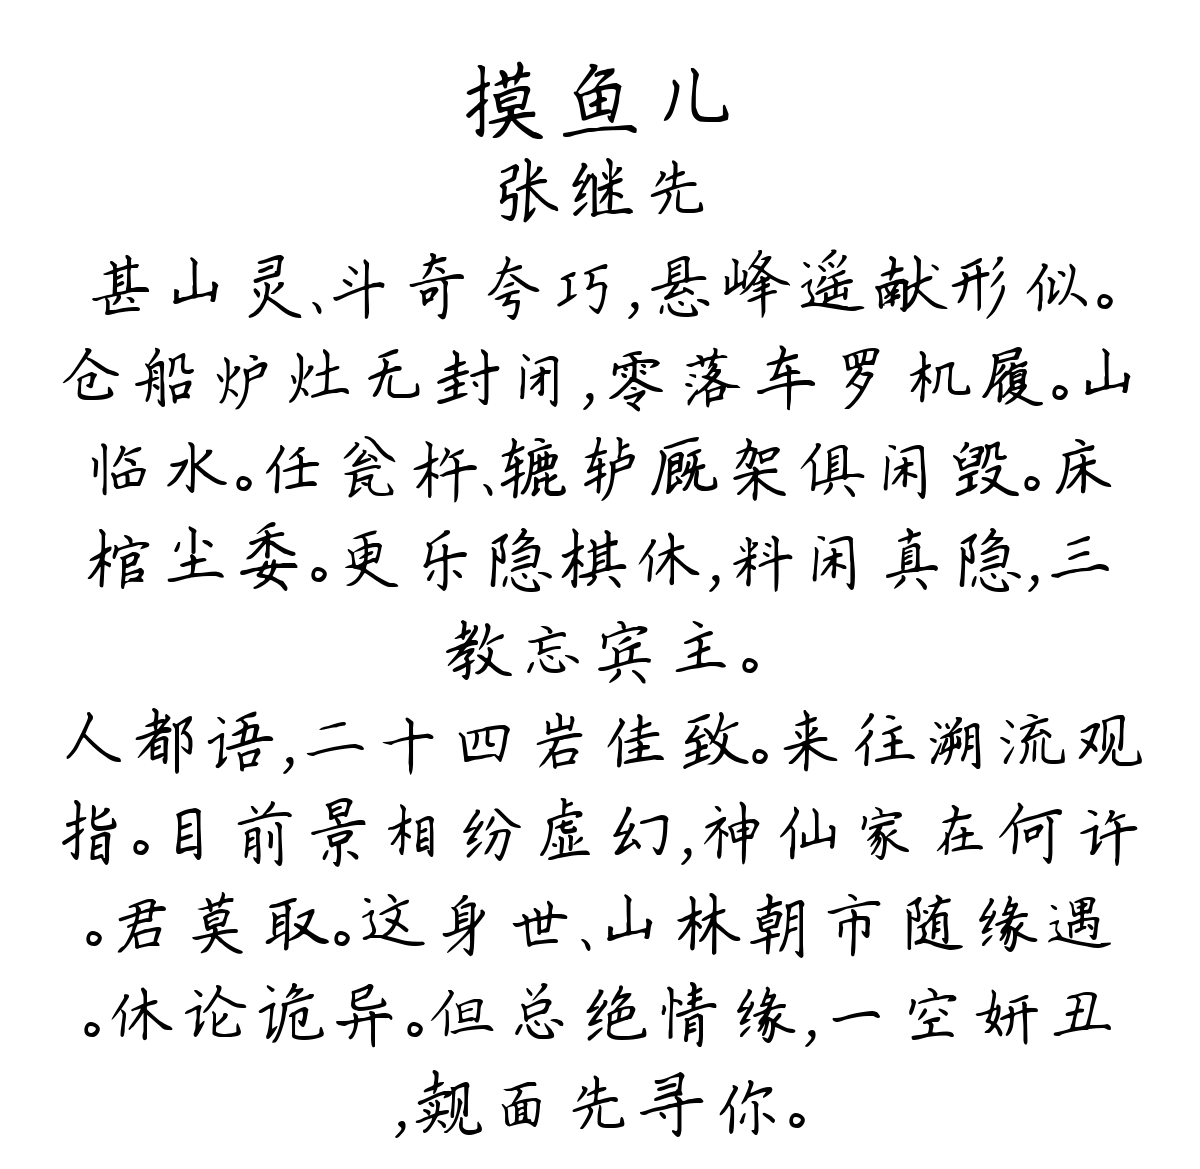 摸鱼儿
张继先
甚山灵、斗奇夸巧,悬峰遥献形似。
仓船炉灶无封闭,零落车罗机履。山
临水。任瓮杵、辘轳厩架俱闲毁。床
棺尘委。更乐隐棋休,料闲真隐,三
教忘宾主。
人都语,二十四岩佳致。来往溯流观
指。目前景相纷虚幻,神仙家在何许
。君莫取。这身世、山林朝市随缘遇
。休论诡异。但总绝情缘,一空妍丑
,觌面先寻你。